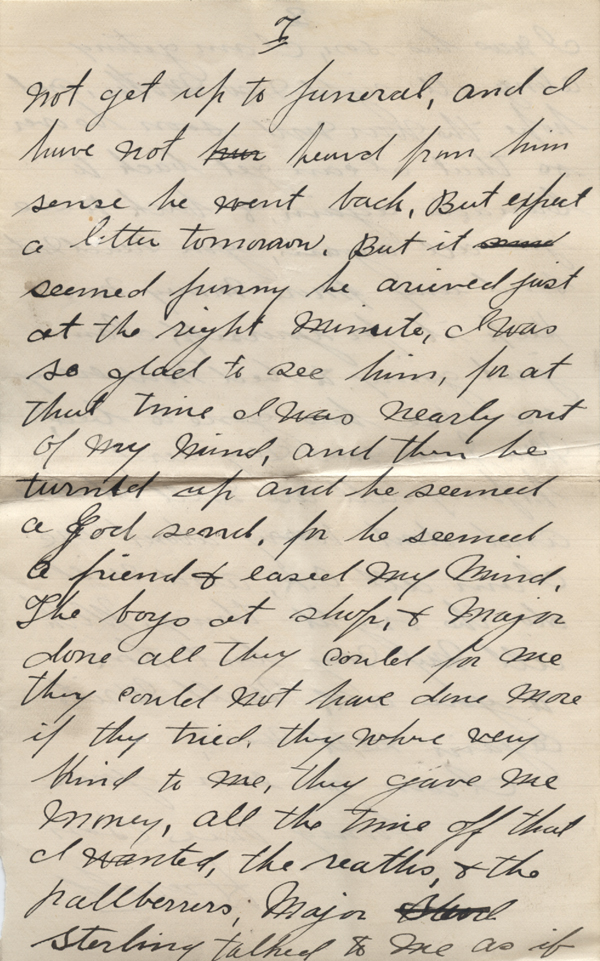 7
not get up to funeral, and I
have not her heard from him
sense he went back, But expect
a letter tomorrow. But it
seemed funny he arieved just
at the right minute, I was
so glad to see him, for at
that time I was nearly out
of my mind, and then he
turned up and he seemed
a God send, for he seemed
a friend & eased my mind.
The boys at shop, & Major
done all they could for me
they could not have done more
if thy tried. they where very
kind to me, they gave me
money, all the time off that
I wanted, the reaths, & the
pallberrers; Major
Sterling talked to me as if